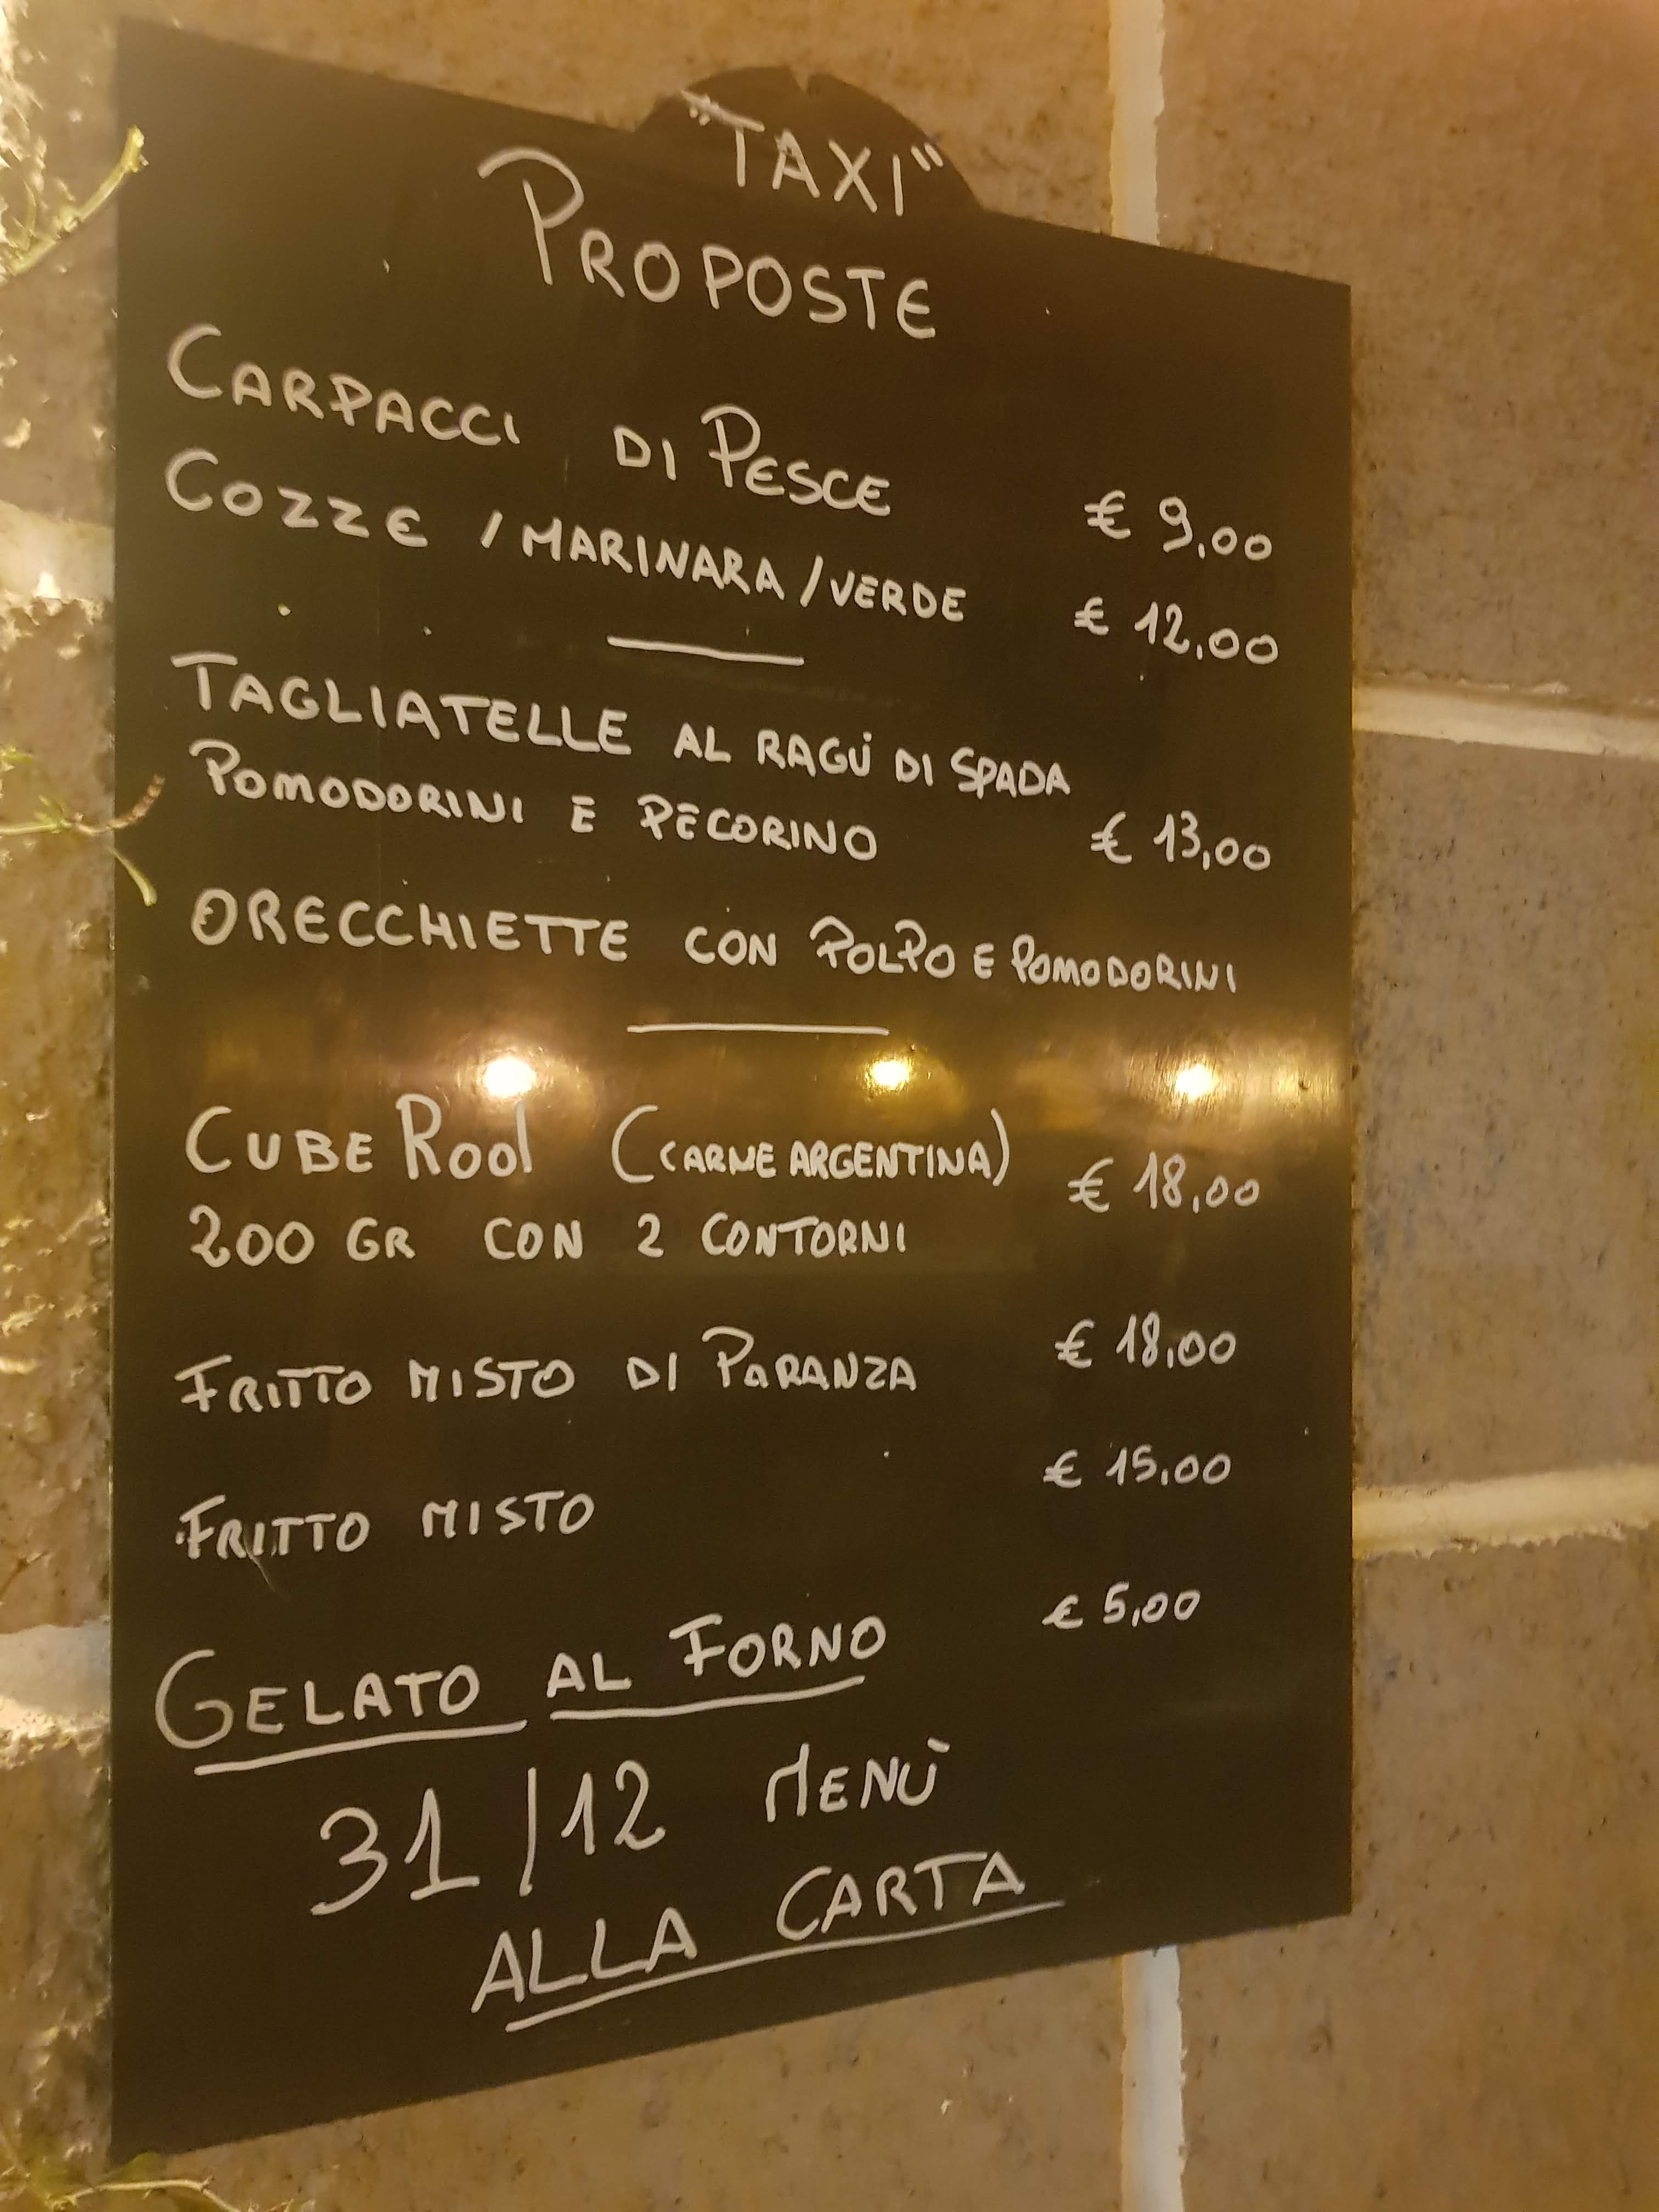 "TAXI"
PROPOSTE
CARPACCI DI PESCE € 9,00
COZZE / MARINARA / VERDE € 12,00
TAGLIATELLE AL RAGÙ DI SPADA
POMODORINI E PECORINO € 13,00
ORECCHIETTE CON POLPO E POMODORINI
CUBE Rool (CARNE ARGENTINA) € 18,00
200 GR CON 2 CONTORNI
FRITTO MISTO DI PaRANZA € 18,00
FRITTO MISTO € 15,00
GELATO AL FORNO € 5,00
31/12 MENÙ
ALLA CARTA